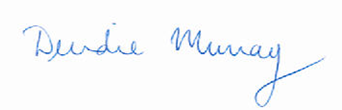 Deirdre Murray